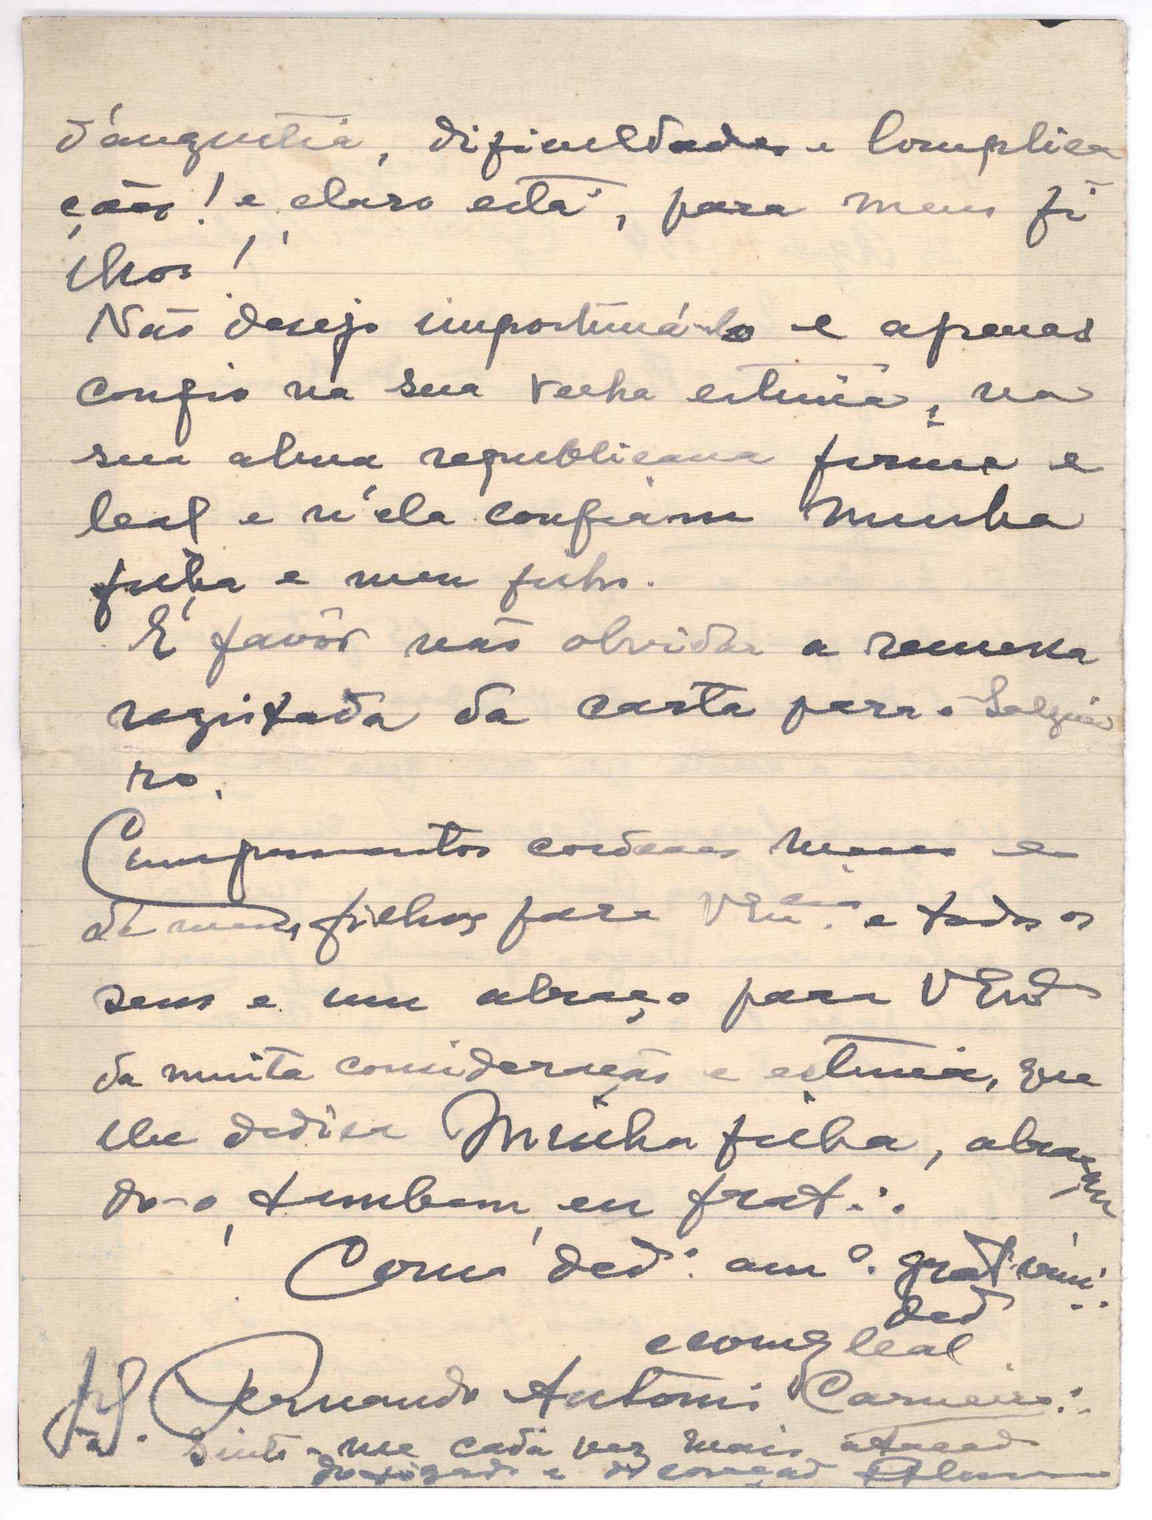 d'angustia, dificuldades e complica
ções! e, claro está, para meus fi
lhos!
Não desejo importuná-lo e apenas
confio na sua velha estima, na
sua alma republicana firme e
leal e n'ela confiam minha
filha e meu filho.
É favôr não olvidar a remessa
registada da carta para o Salguei
ro.
Cumprimentos cordeaes meus e
de meus filhos para VEx.cia e todos os
seus e um abraço para VEx
da muita consideração e estima, que
lhe dedica Minha filha, abraçan
do-o, tambem, eu frat∴
Como ded. am.º grat
ded
e leal
Fernando Antonio Carneiro∴
Sinto-me cada vez mais atacado
do figado e do coração